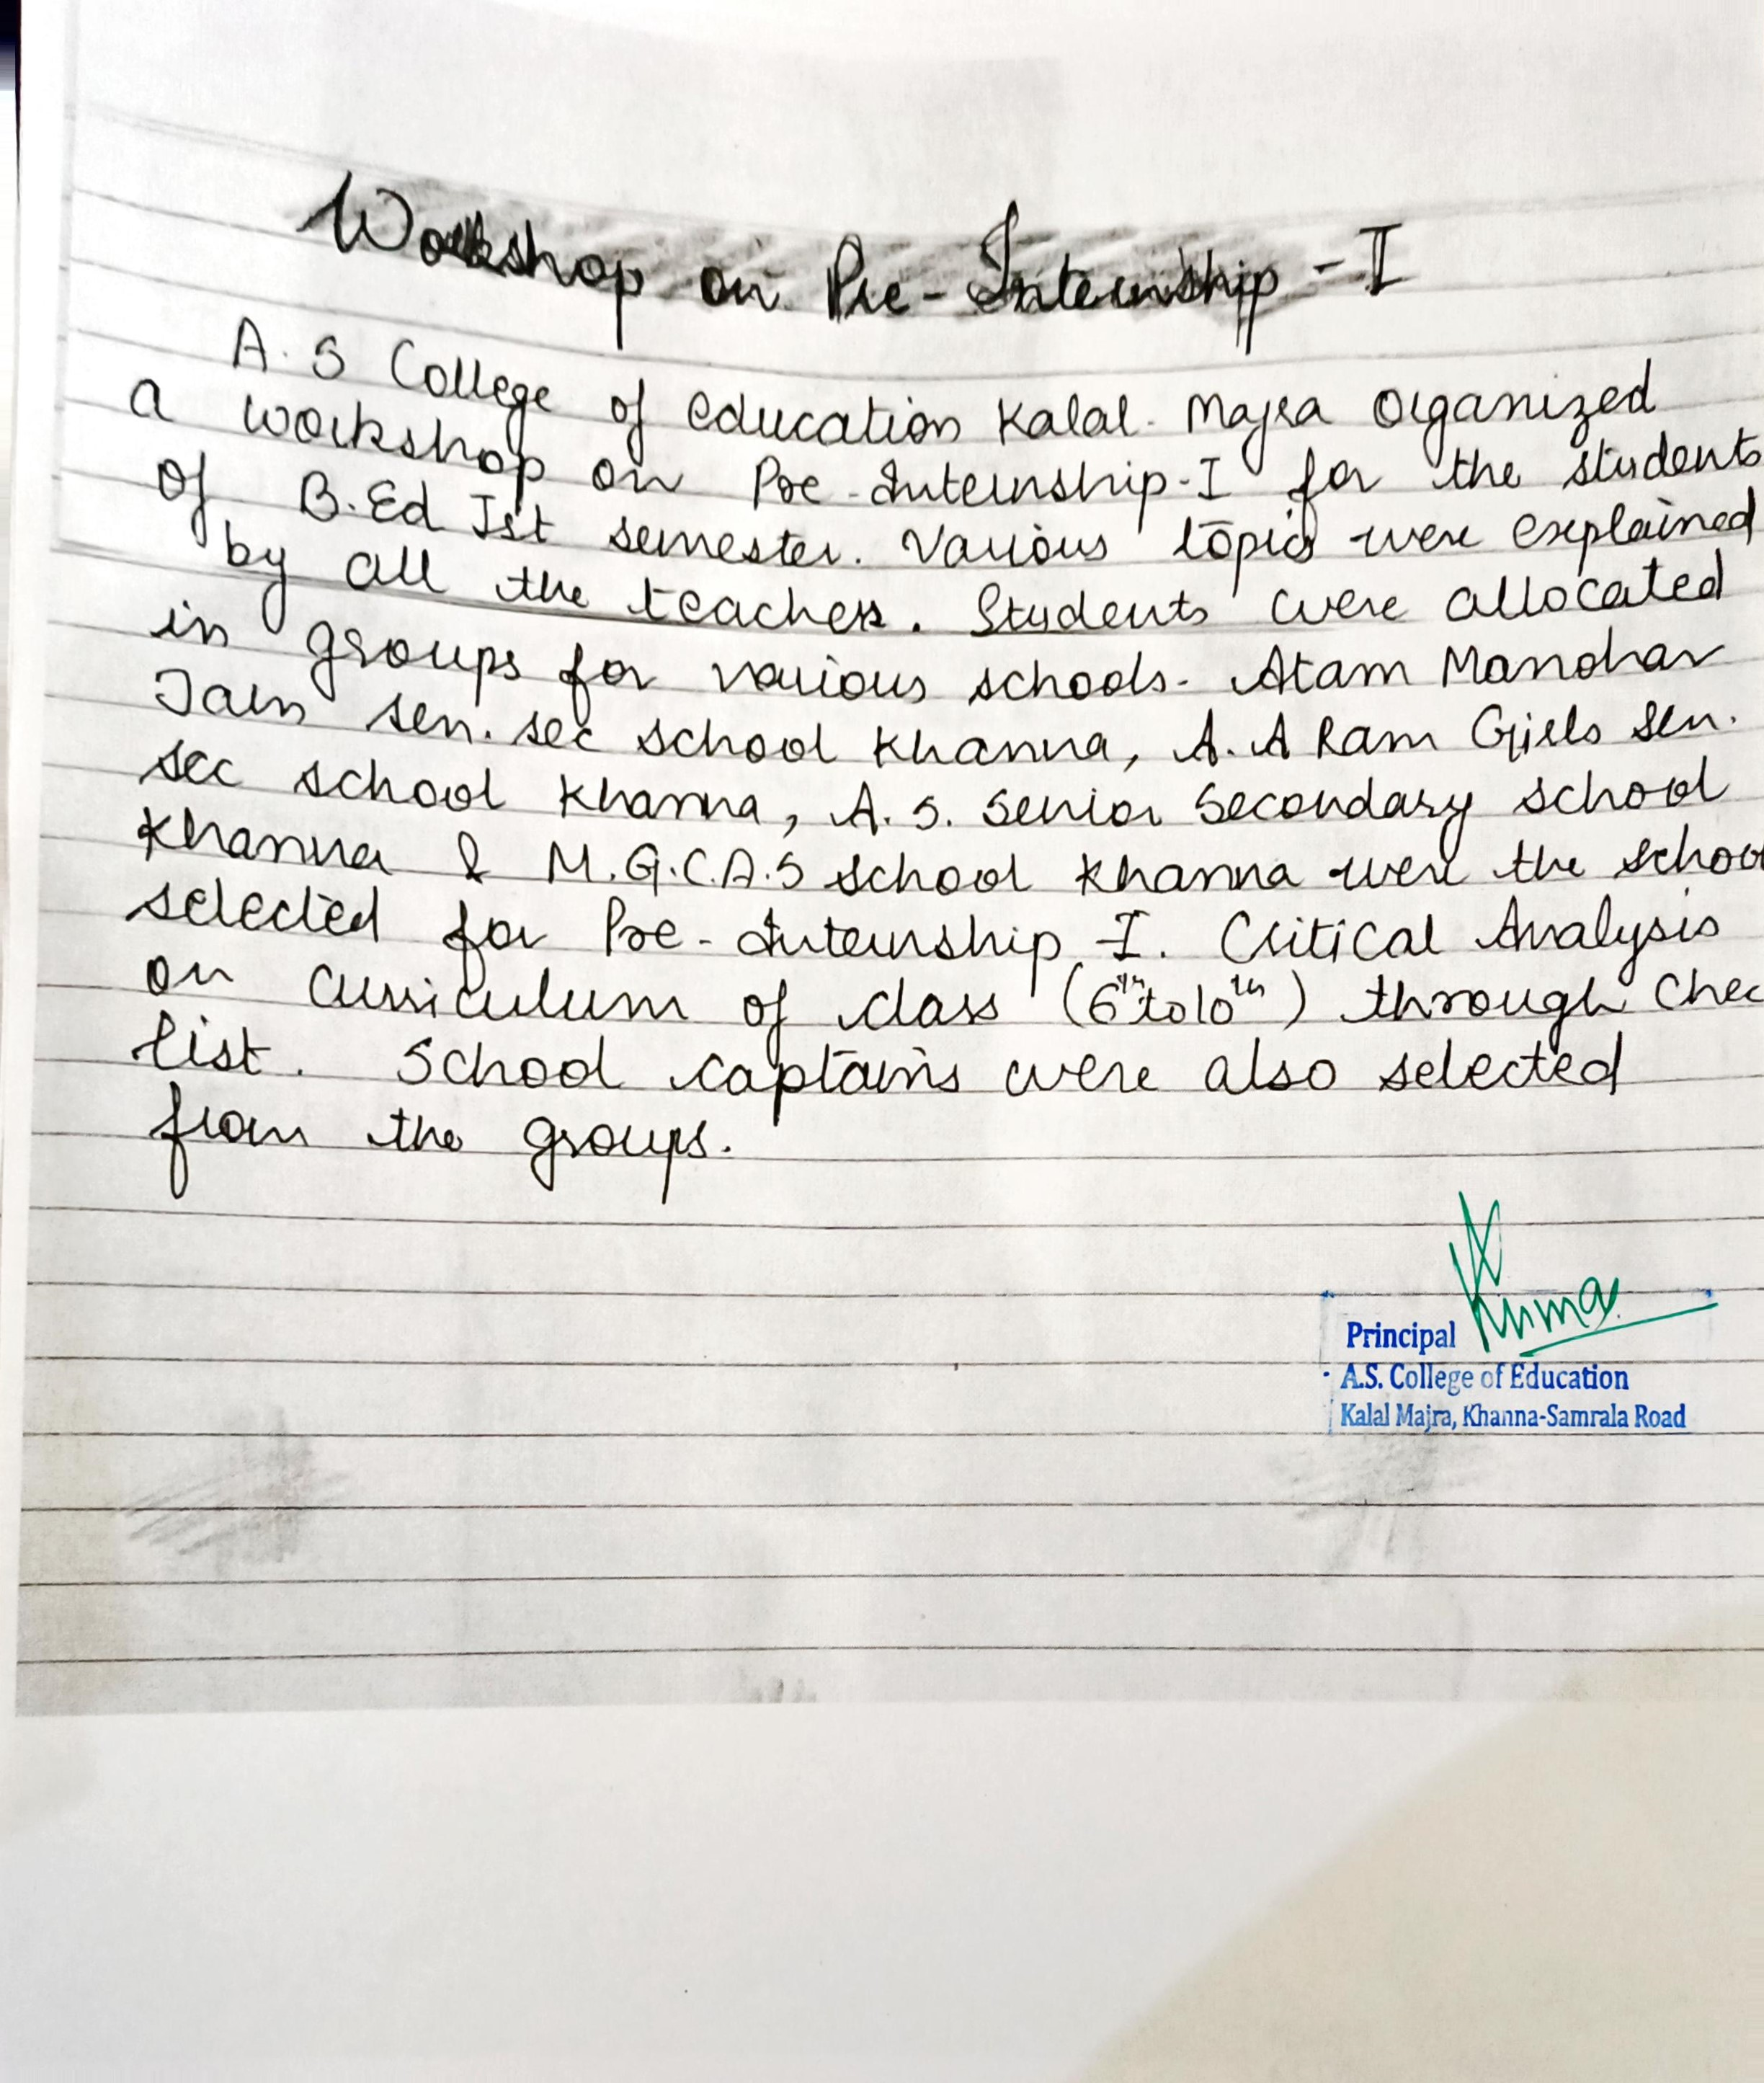 Workshop on Pre-Internship - I
A.S College of education Kalal. Majra Organized
a workshop on Pre-Internship-I for the students
of B.Ed Ist semester. Various topics were explained
by all the teachers. Students were allocated
in groups for various schools. Atam Manohar
Jain sen. sec school Khanna, A.A Ram Girls Sen.
sec school Khanna, A.S. Senior Secondary school
Khanna & M.G.C.A.S school Khanna were the school
selected for Pre-Internship -I. Critical Analysis
on Curriculum of class (6th to 10th) through Chec
list. School captains were also selected
from the groups.
Kuma
Principal
A.S. College of Education
Kalal Majra, Khanna-Samrala Road